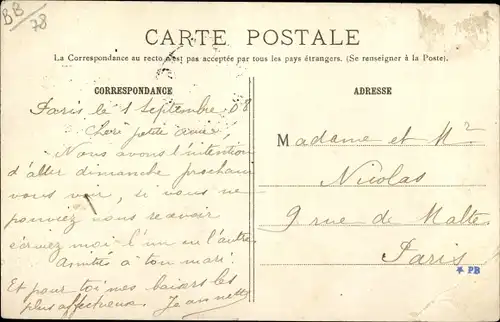 BB
78
CARTE POSTALE
La Correspondance au recto n'est pas acceptée par tous les pays étrangers. (Se renseigner à la Poste).
CORRESPONDANCE
Paris le 1 Septembre 08
Chère petite amie,
Nous avons l'intention
d'aller dimanche prochain
vous voir, si vous ne
pouviez nous recevoir
écrivez moi l'un ou l'autre
Amitiés à ton mari
Et pour toi mes baisers les
plus affectueux. Jeannette
ADRESSE
Madame et Mr
Nicolas
9 rue de Malte
Paris
* PB